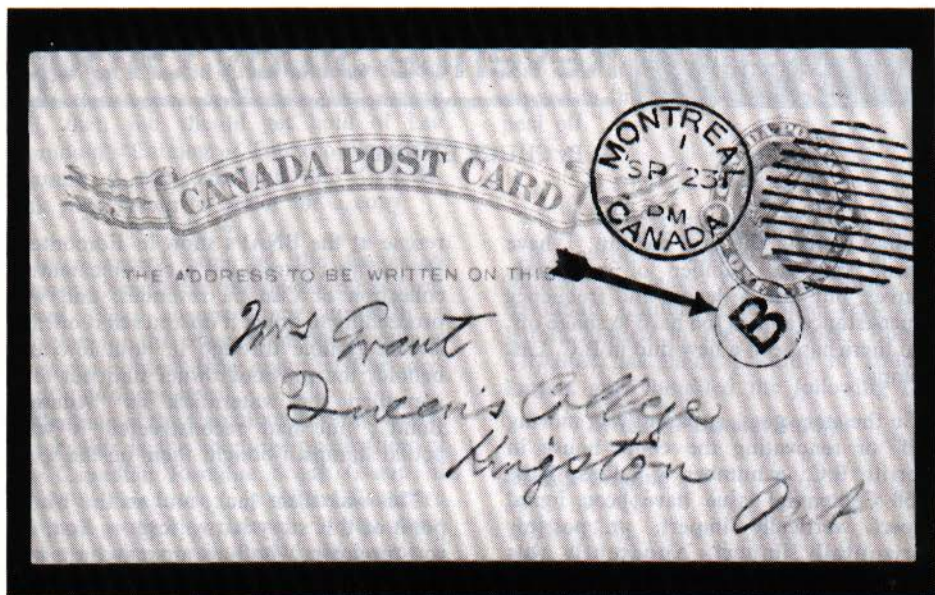 CANADA POST CARD
MONTREAL
1
SP 23
PM
CANADA
THE ADDRESS TO BE WRITTEN ON THIS
B
Mrs Grant
Queen's College
Kingston
Ont